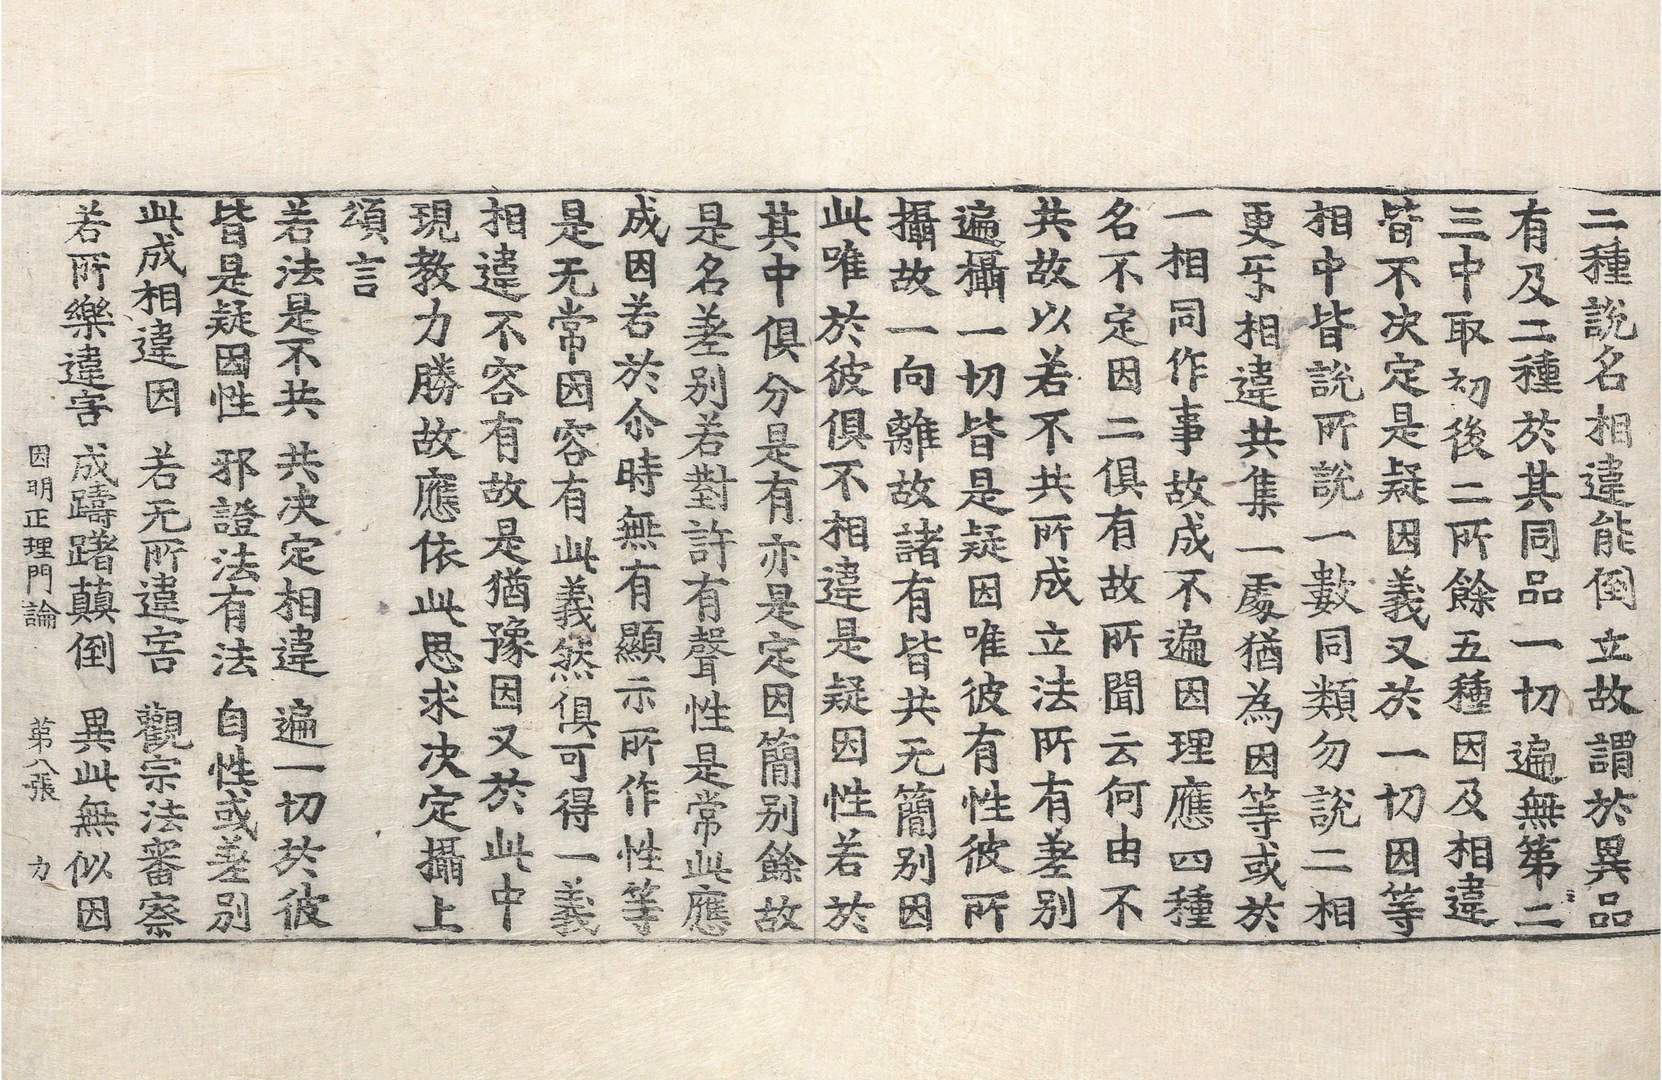 二種說名相違能倒立故謂於異品
有及二種於其同品一切遍無第二
三中取初後二所餘五種因及相違
皆不決定是疑因義又於一切因等
相中皆說所說一數同類勿說二相
更互相違共集一處猶為因等或於
一相同作事故成不遍因理應四種
名不定因二俱有故所聞云何由不
共故以若不共所成立法所有差別
遍攝一切皆是疑因唯彼有性彼所
攝故一向離故諸有皆共无簡別因
此唯於彼俱不相違是疑因性若於
其中俱分是有亦是定因簡別餘故
是名差別若對許有聲性是常此應
成因若於尒時無有顯示所作性等
是无常因容有此義然俱可得一義
相違不容有故是猶豫因又於此中
現教力勝故應依此思求決定攝上
頌言
若法是不共　共決定相違　遍一切於彼
皆是疑因性　邪證法有法　自性或差別
此成相違因　若无所違害　觀宗法審察
若所樂違害　成躊躇顛倒　異此無似因
因明正理門論　第八張　力